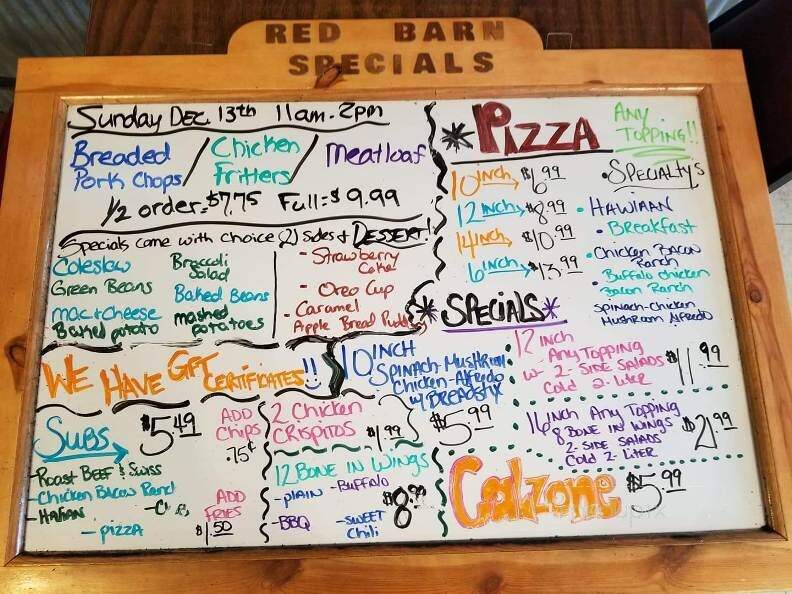 RED BARN
SPECIALS
Sunday DEC. 13th 11am-2pm
Breaded
Pork Chops/
Chicken
Fritters/
Meatloaf
1/2 order-$7.75 Full-$9.99
Specials come with choice (2) sides + DESSERT!
Coleslaw
Green Beans
mac + Cheese
Baked potato
Broccoli
Salad
Baked Beans
mashed
potatoes
- Strawberry
Cake
- Oreo Cup
- Caramel
Apple Bread Pudding
WE HAVE GIFT CERTIFICATES!!
SUBS $5.49
ADD
Chips
.75¢
- Roast BEEF & Swiss
- Chicken Bacon Ranch
- Italian
- PIZZA
ADD
FRIES
$1.50
2 Chicken
CRISPITOS $1.99
12 BONE IN WINGS
- PLAIN - BUFFALO
- BBQ - SWEET
Chili
$8.99
* PIZZA
ANY
TOPPING!!
10 INCH $6.99
12 INCH $8.99
14 INCH $10.99
16 INCH $13.99
• SPECIALTYS
• HAWIIAN
• Breakfast
• Chicken Bacon
Ranch
• Buffalo chicken
Bacon Ranch
SPINACH-Chicken
MUSHROOM Alfredo
* SPECIALS *
10 INCH
SPINACH-MUSHROOM
Chicken-Alfredo
w/ BREADSTIX
$5.99
12 INCH
Any TOPPING
w- 2-SIDE SALADS
Cold 2-Liter
$11.99
16 INCH Any TOPPING
8 BONE IN WINGS
2-SIDE SALADS
Cold 2-LITER
$21.99
Calzone $5.99